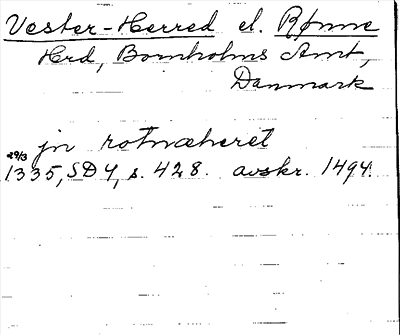 Vester-Herred el. Rønne
Hrd, Bornholms Amt,
Danmark
jn rotnæheret
29/3
1335, SD 4, s. 428. avskr. 1494.